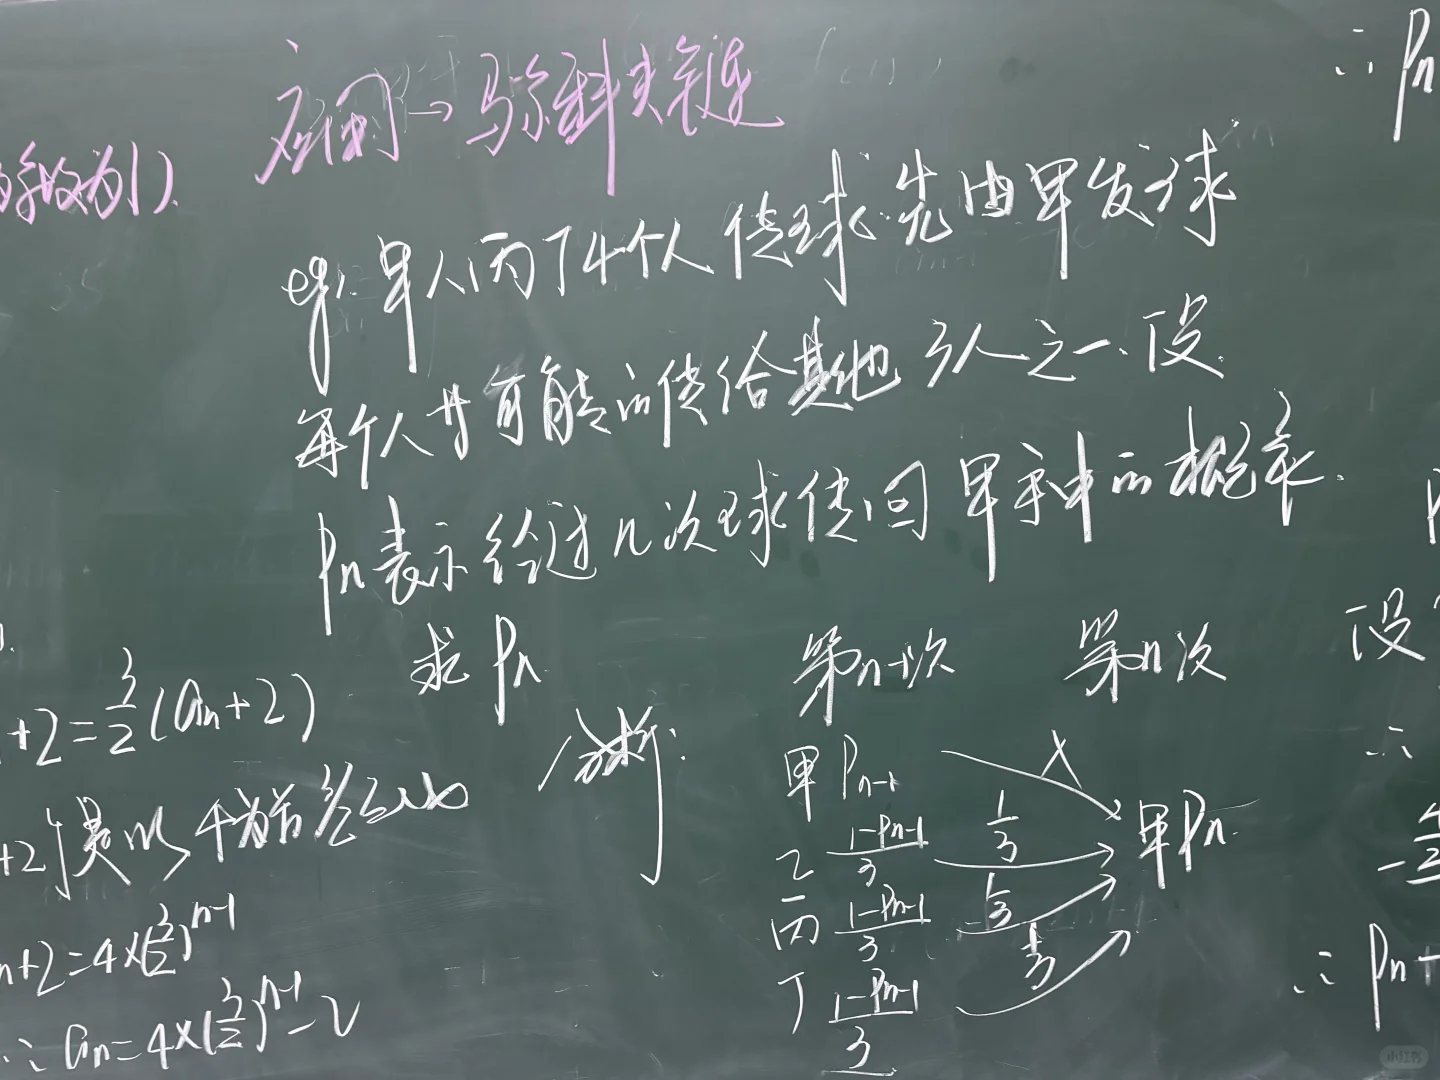 应用→马尔科夫链
系数为1).
eg. 甲乙丙丁4个人传球.先由甲发球
每个人等可能的传给其他3人之一.设
Pn表示经过n次球传回甲手中的概率.
求Pn
+2=3/2(an+2)
+2是以4为首
n+2=4×(3/2)^n-1
∴an=4×(3/2)^n-1-2
分析:
第n-1次 第n次
甲 Pn-1
乙 1-Pn-1/3 1/3
丙 1-Pn-1/3 1/3
丁 1-Pn-1/3 1/3
甲Pn.
∴Pn
设
∴
∴Pn+
小红书